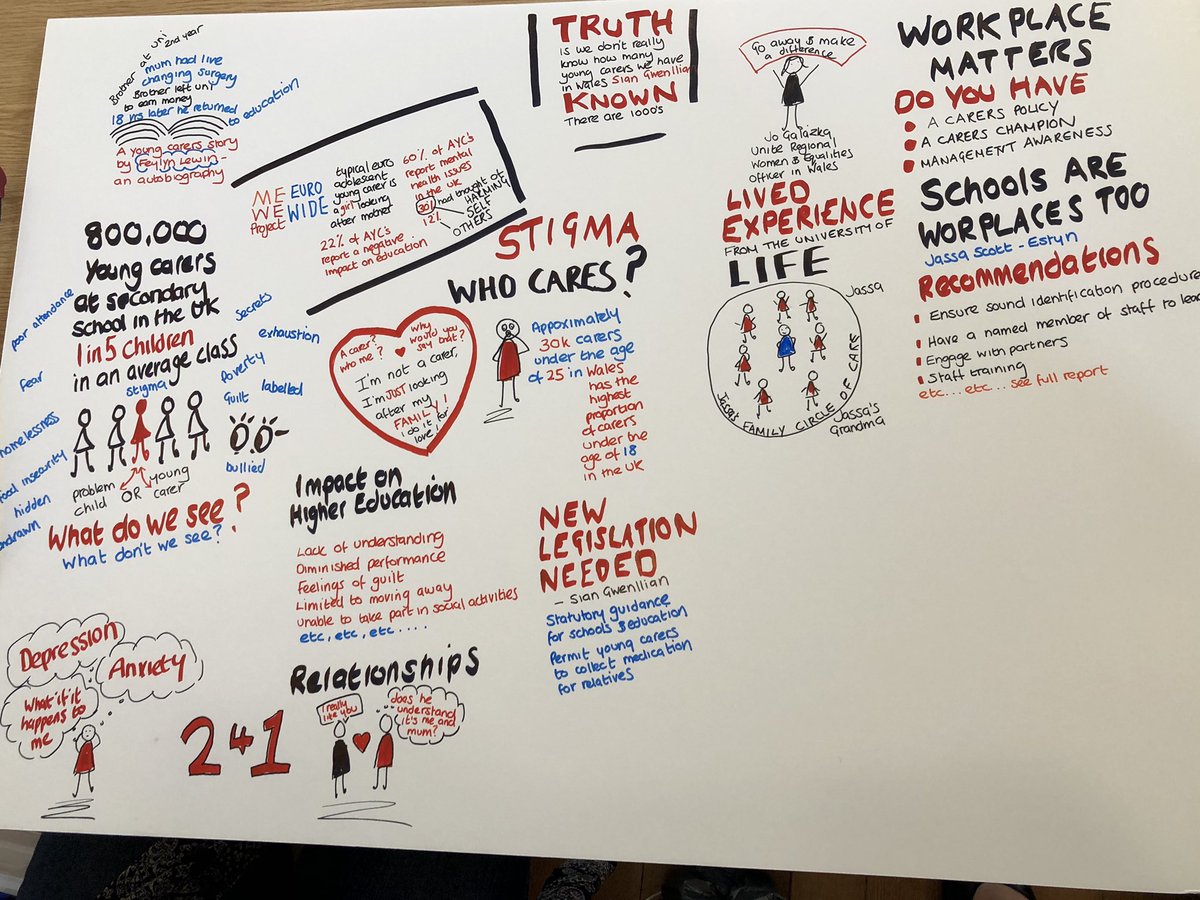 Brother at uni 2nd year
mum had live
changing surgery
Brother left uni
to earn money
18 yrs later he returned
to education
A young carers story
by Feylyn Lewin -
an autobiography
ME
WE
Project
EURO
WIDE
typical euro
adolescent
young carer is
a girl looking
after mother
60% of AYC's
report mental
health issues
in the UK
30/ had thought of
12%
HARMING
SELF
OTHERS
22% of AYC's
report a negative
impact on education
TRUTH
is we don't really
know how many
young carers we have
in Wales Sian Gwenllian
KNOWN
There are 1000's
Go away & make
a difference
Jo Galazka
Unite Regional
Women & Equalities
Officer in Wales
WORKPLACE
MATTERS
DO YOU HAVE
A CARERS POLICY
A CARERS CHAMPION
MANAGEMENT AWARENESS
SCHOOLS ARE
WORPLACES TOO
Jassa Scott - Estyn
Recommendations
Ensure sound identification procedure
Have a named member of staff to lead
Engage with partners
Staff training
etc... etc... see full report
800,000
Young carers
at secondary
school in the UK
1 in 5 children
in an average class
stigma
poor attendance
fear
homelessness
food insecurity
hidden
secrets
exhaustion
poverty
Guilt
labelled
bullied
problem
child
OR
young
carer
What do we see?
What don't we see?
STIGMA
WHO CARES?
A carer?
who me?
why
would you
say that?
I'm not a carer,
I'm JUST looking
after my
FAMILY!
I do it for
love!
Appoximately
30k carers
under the age
of 25 in Wales
has the
highest
proportion
of carers
under the
age of 18
in the UK
LIVED
EXPERIENCE
FROM THE UNIVERSITY OF
LIFE
Jassa
Jassa's FAMILY CIRCLE OF CARE
Jassa's
Grandma
Impact on
Higher Education
Lack of understanding
Diminished performance
Feelings of guilt
Limited to moving away
unable to take part in social activities
etc, etc, etc....
NEW
LEGISLATION
NEEDED
- Sian Gwenllian
Statutory guidance
for schools & education
Permit young carers
to collect medication
for relatives
Depression
Anxiety
What if it
happens to
me
2 4 1
Relationships
I really
like you
does he
understand
it's me and
mum?